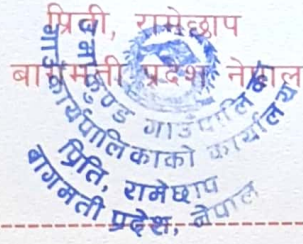 प्रिती, रामेछाप
बागमती प्रदेश, नेपाल
उमाकुण्ड गाउँपालिका
गाउँ कार्यपालिकाको कार्यालय
प्रिति, रामेछाप
बागमती प्रदेश, नेपाल